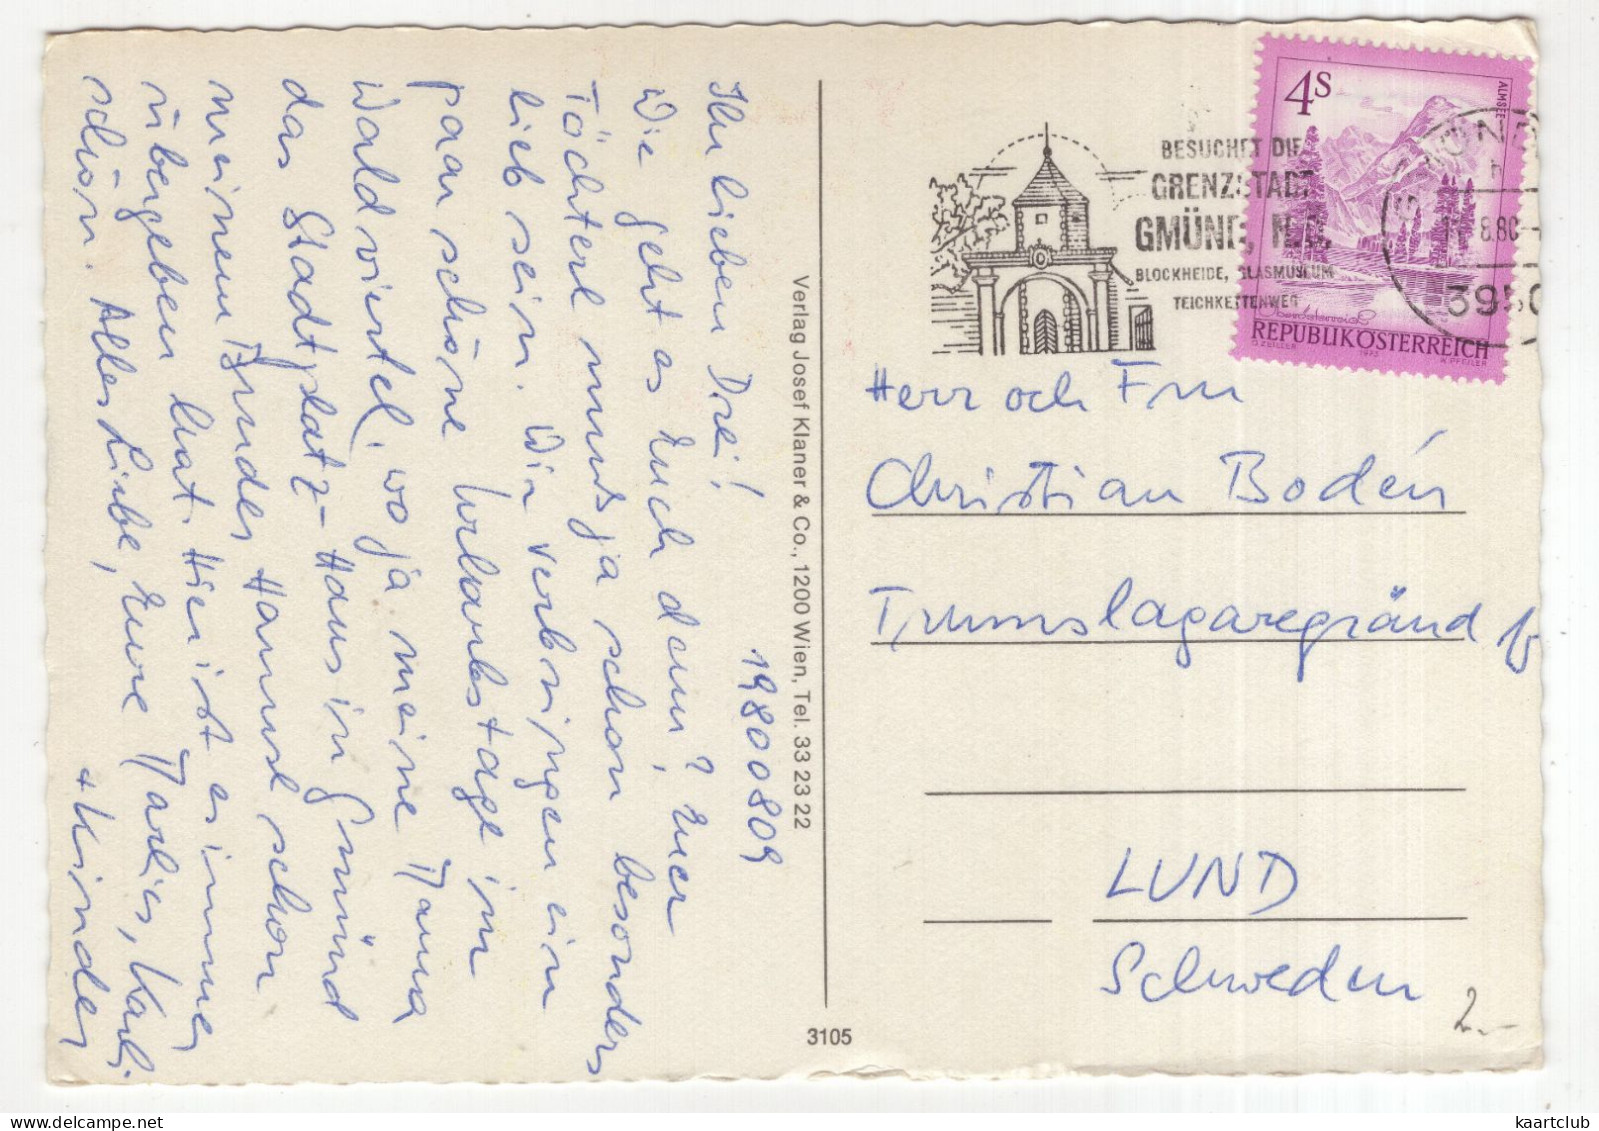 19800809
Ihr lieben Drei!
Wie geht es Euch denn? Euer
Töchterl muss ja schon besonders
lieb sein. Wir verbringen ein
paar schöne Urlaubstage im
Waldviertel, wo ja meine Mama
das Stadtplatz-Haus in Gmünd
meinem Bruder Hannsl schon
übergeben hat. Hier ist es immer
schön. Alles Liebe, Eure Marlies, Karli
+ Kinder
Verlag Josef Klaner & Co., 1200 Wien, Tel. 33 23 22
3105
BESUCHET DIE
GRENZSTADT
GMÜND, N.Ö.
BLOCKHEIDE, GLASMUSEUM
TEICHKETTENWEG
4S
ALMSEE
Oberösterreich
REPUBLIK ÖSTERREICH
O. ZEILLER 1973 W. PFEILER
8.80
3950
Herr och Fru
Christian Bodén
Trumslagaregränd
LUND
Schweden
2.-
kaartclub